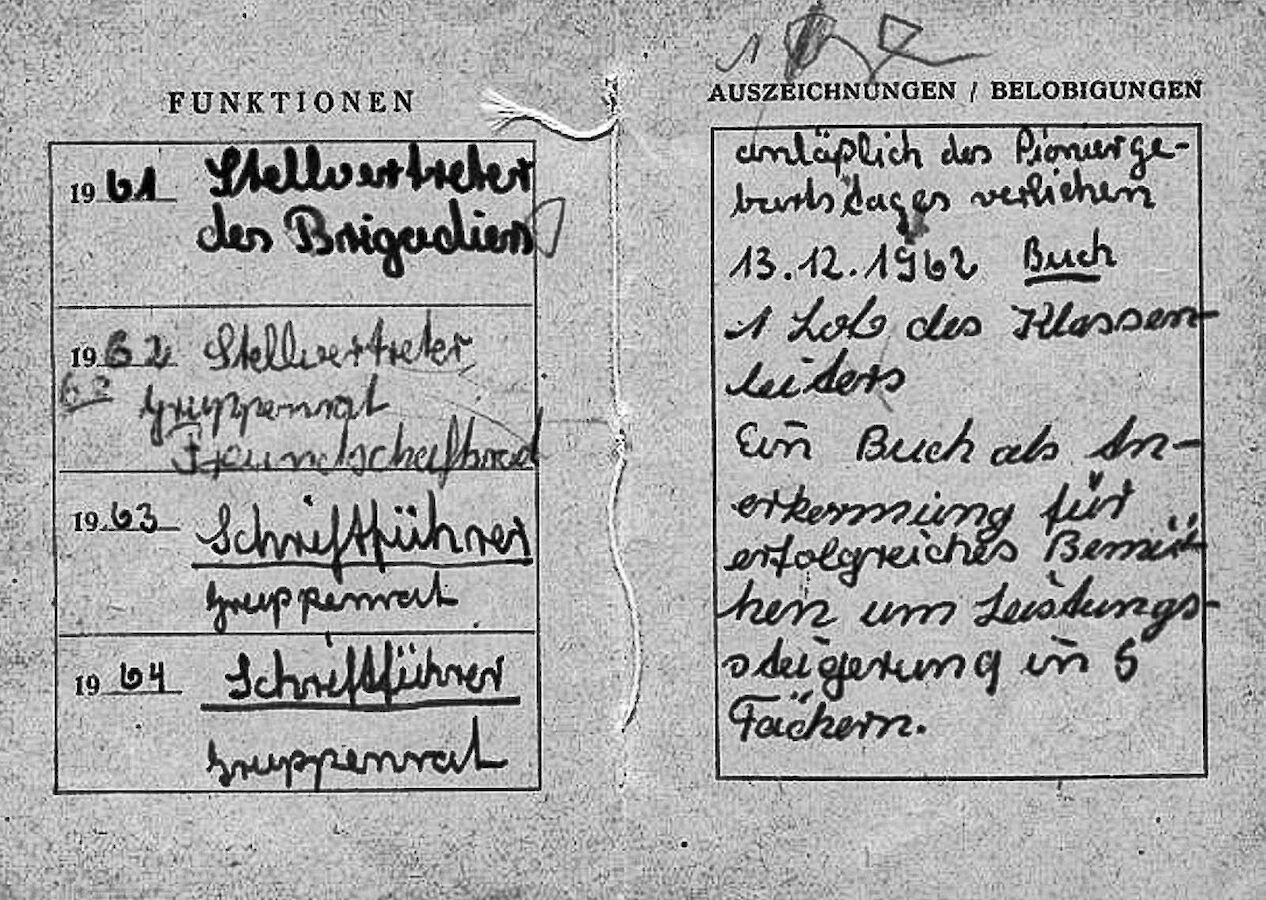 FUNKTIONEN
1961 Stellvertreter
des Brigadiers
1962 Stellvertreter
63 Gruppenrat
Freundschaftsrat
1963 Schriftführer
Gruppenrat
1964 Schriftführer
Gruppenrat
1
AUSZEICHNUNGEN / BELOBIGUNGEN
anläßlich des Pionierge-
burtstages verliehen
13.12.1962 Buch
1 Lob des Klassen-
leiters
Ein Buch als An-
erkennung für
erfolgreiches Bemü-
hen um Leistungs-
steigerung in 5
Fächern.